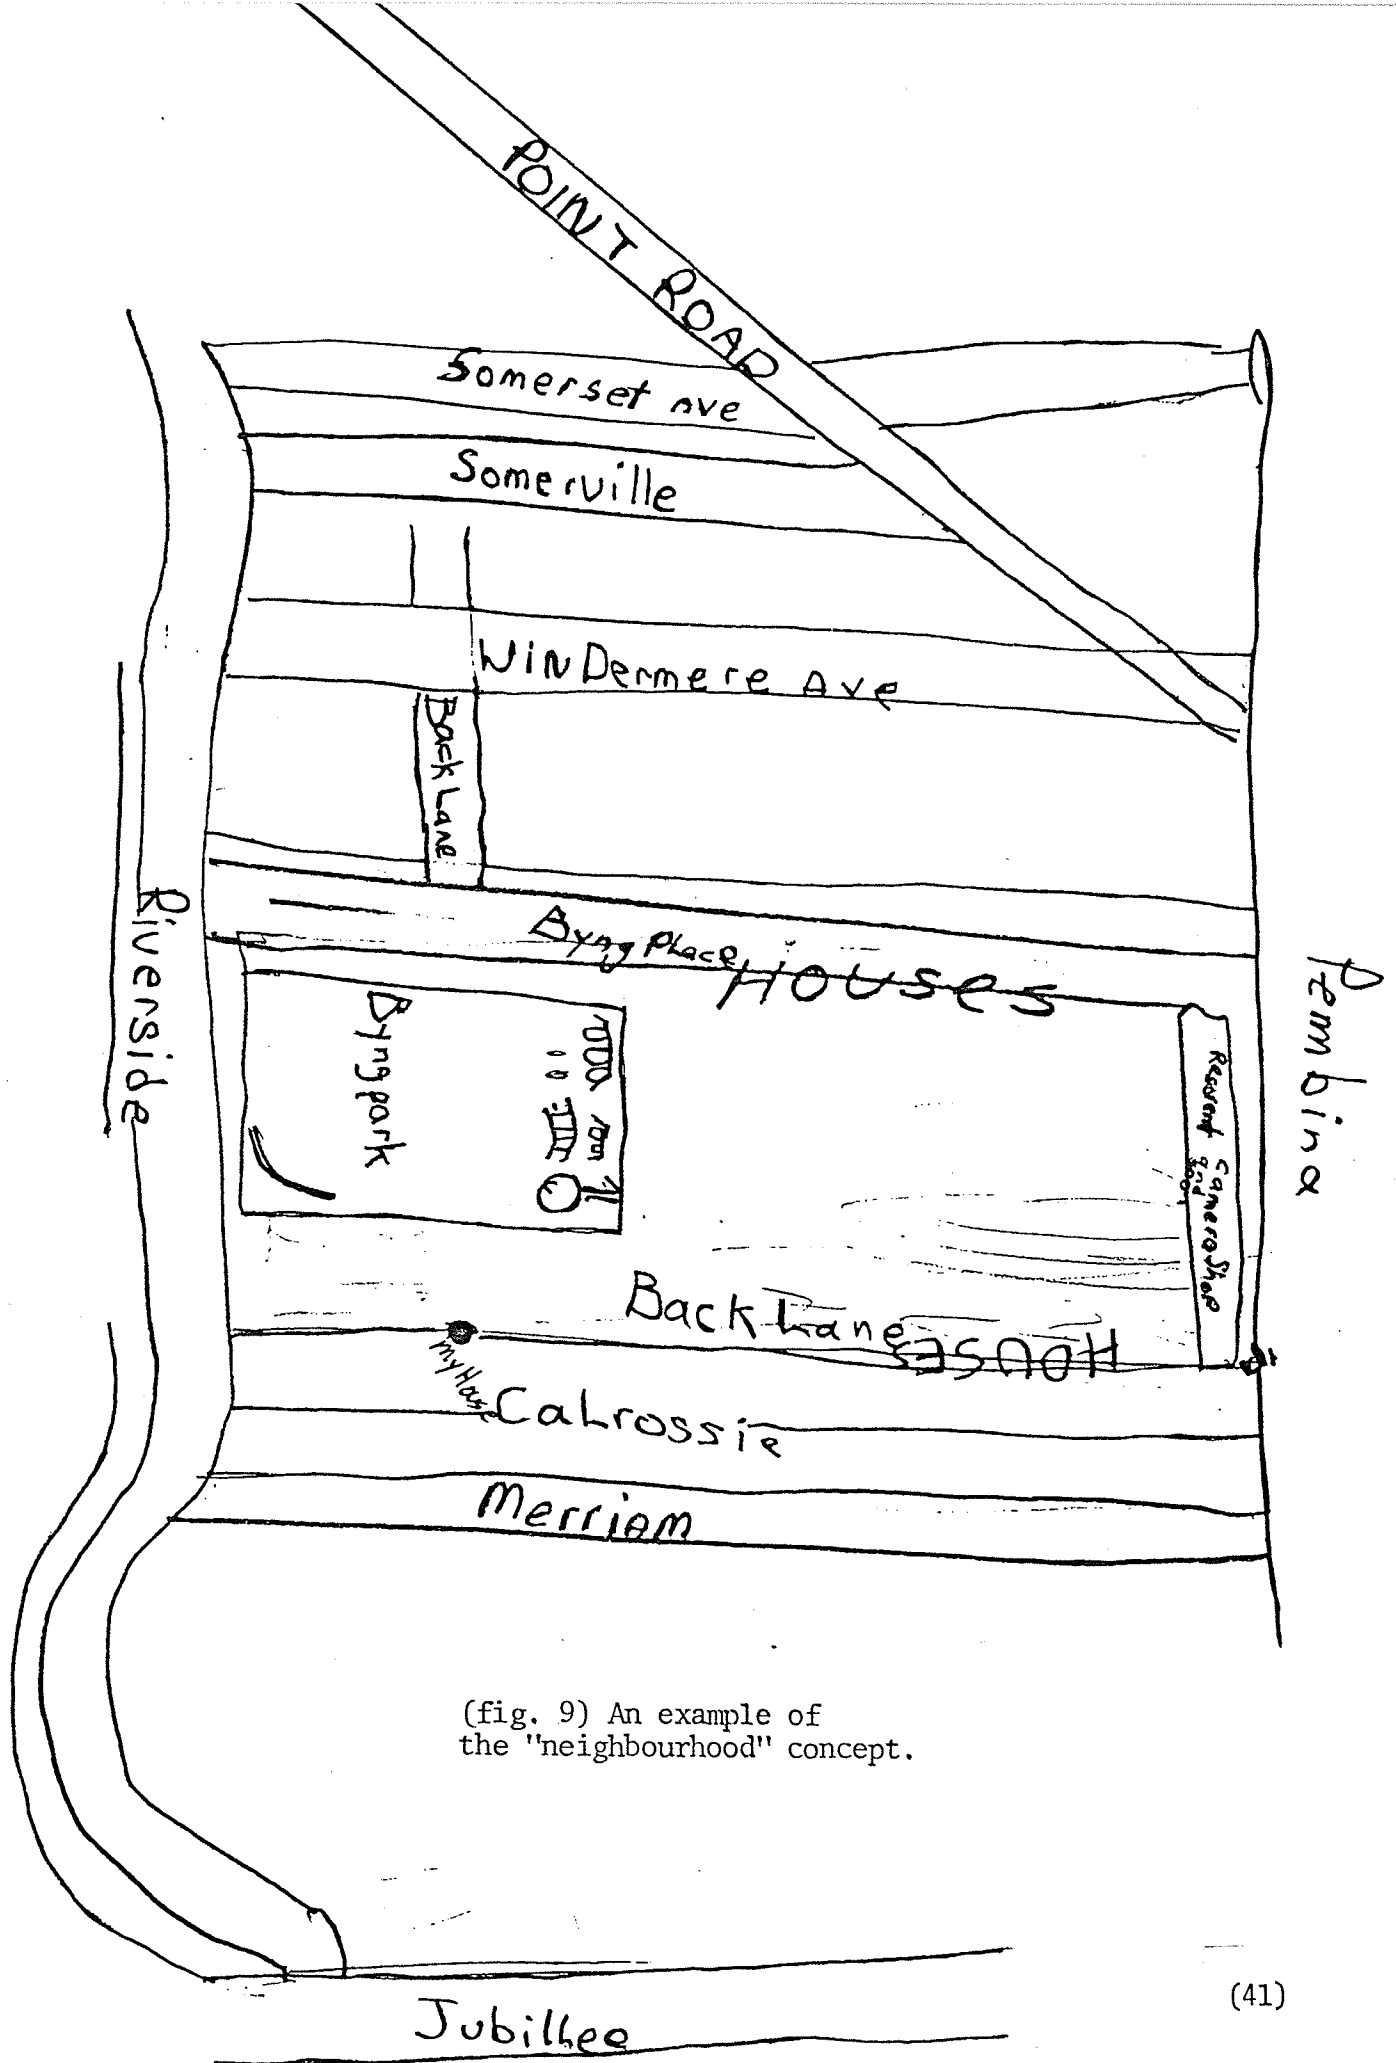 POINT ROAD
Somerset Ave
Somerville
WINDermere Ave
Back Lane
Byng Place
Houses
Riverside
Pembina
Byng park
Camero Shop
and
Back Lane
HOUSES
my House
CaLrossie
Merriam
(fig. 9) An example of
the "neighbourhood" concept.
(41)
Jubilhee